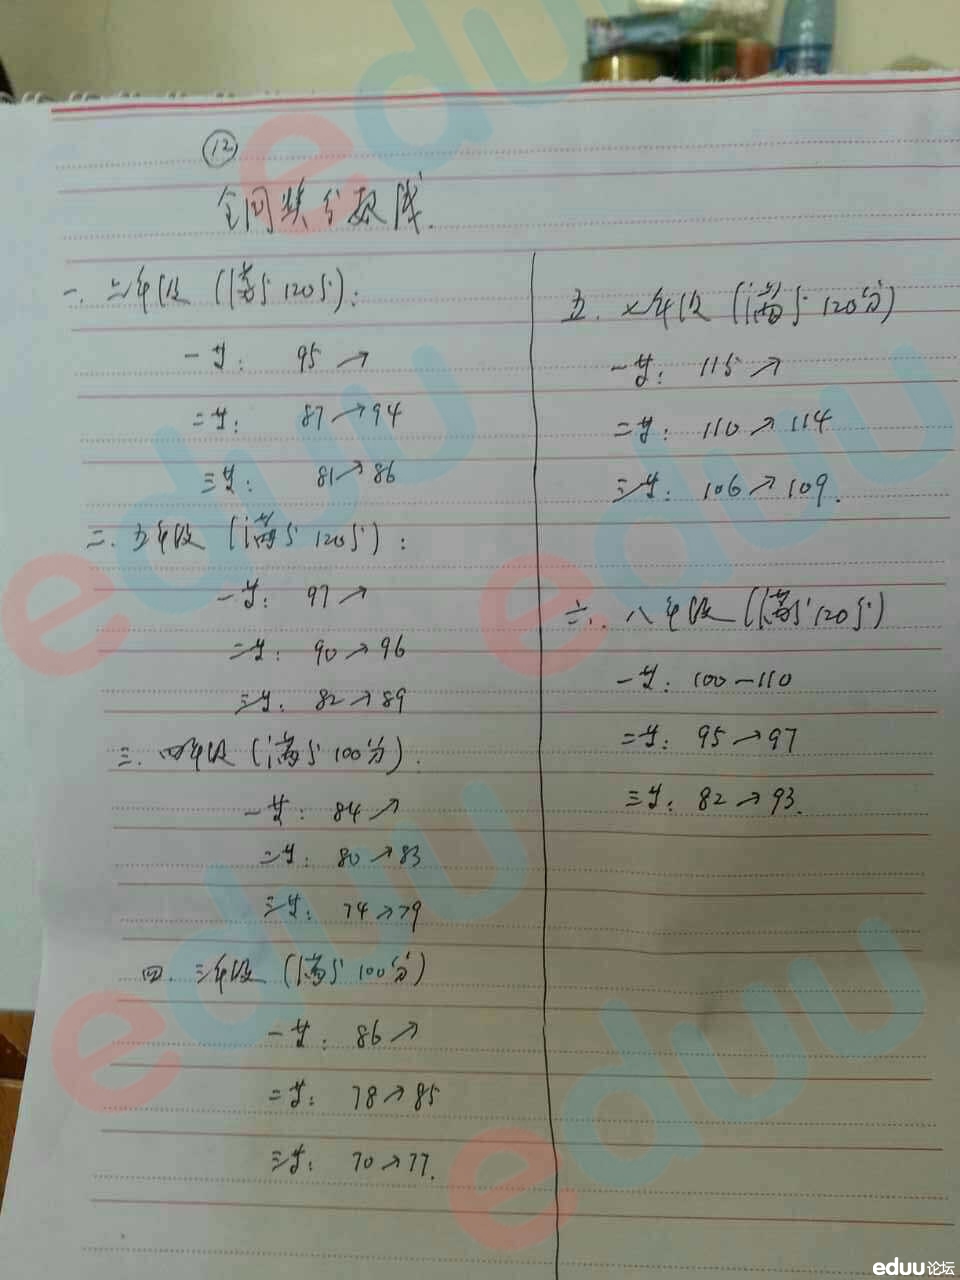 ⑫
全国奖分数线.
一. 六年级 (满分120分):
一等: 95↗
二等: 87→94
三等: 81→86
二. 五年级 (满分120分):
一等: 97↗
二等: 90→96
三等: 82→89
三. 四年级 (满分100分).
一等: 84↗
二等: 80→83
三等: 74→79
四. 三年级 (满分100分)
一等: 86↗
二等: 78→85
三等: 70→77.
五. 七年级 (满分120分)
一等: 115↗
二等: 110→114
三等: 106→109.
六. 八年级 (满分120分)
一等: 100—110
二等: 95→97
三等: 82→93.
eduu
eduu
eduu
eduu
eduu
eduu论坛